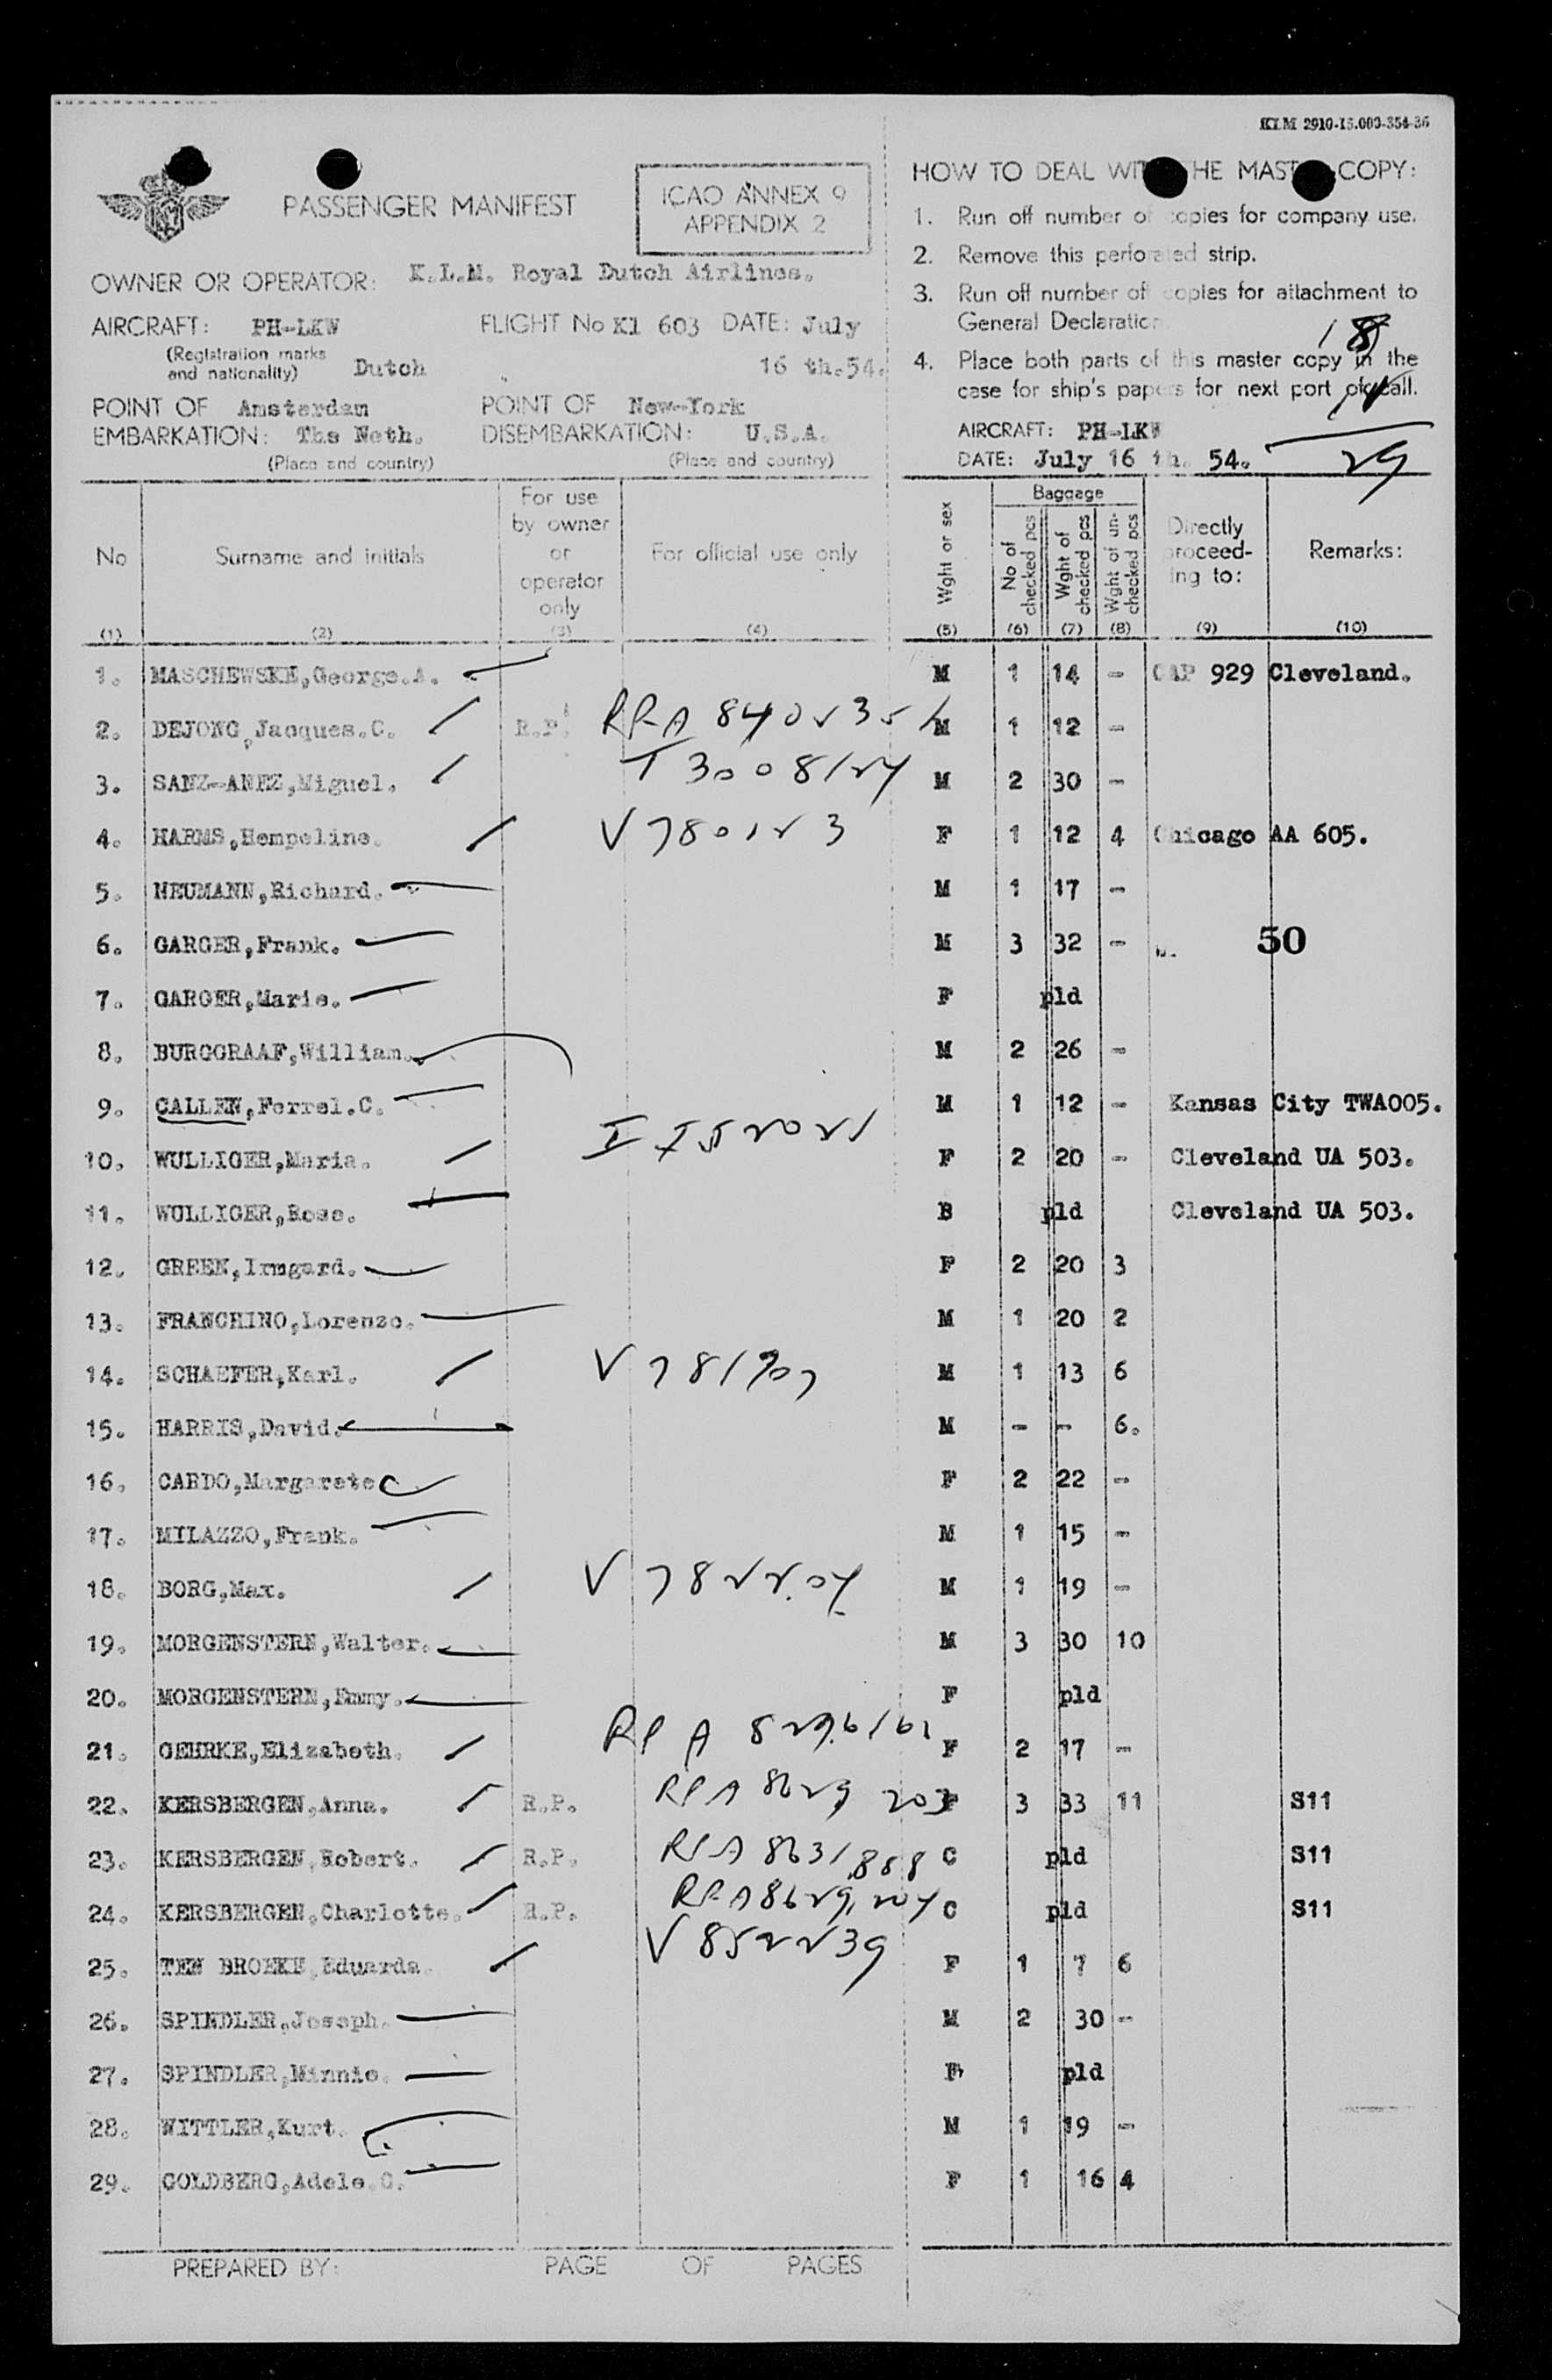 KLM 2910-15.000-354-36
PASSENGER MANIFEST
ICAO ANNEX 9
APPENDIX 2
OWNER OR OPERATOR: K.L.M. Royal Dutch Airlines.
AIRCRAFT: PH-LKW FLIGHT No Kl 603 DATE: July
(Registration marks
and nationality) Dutch 16 th.54.
POINT OF Amsterdam POINT OF New-York
EMBARKATION: The Neth. DISEMBARKATION: U.S.A.
(Place and country) (Place and country)
HOW TO DEAL WITH THE MASTER COPY:
1. Run off number of copies for company use.
2. Remove this perforated strip.
3. Run off number of copies for attachment to
General Declaration
18
4. Place both parts of this master copy in the
case for ship's papers for next port of call.
AIRCRAFT: PH-LKW
DATE: July 16 th. 54.
29
No Surname and initials For use by owner or operator only For official use only Wght or sex Baggage No of checked pcs Wght of checked pcs Wght of un-checked pcs Directly proceed-ing to: Remarks:
(1) (2) (3) (4) (5) (6) (7) (8) (9) (10)
1. MASCHEWSKE,George.A. M 1 14 - CAP 929 Cleveland.
2. DEJONG,Jacques.C. R.P. M 1 12 -
3. SANZ-ANEZ,Miguel. T 3008124 M 2 30 -
4. HARMS,Hempeline. V780123 F 1 12 4 Chicago AA 605.
5. NEUMANN,Richard. M 1 17 -
6. GARGER,Frank. M 3 32 - 50
7. GARGER,Marie. F pld
8. BURGGRAAF,William. M 2 26 -
9. CALLEN,Ferrel.C. M 1 12 - Kansas City TWA005.
10. WULLIGER,Maria. F 2 20 - Cleveland UA 503.
11. WULLIGER,Rose. B pld Cleveland UA 503.
12. GREEN,Irmgard. F 2 20 3
13. FRANCHINO,Lorenzo. M 1 20 2
14. SCHAEFER,Karl. V781707 M 1 13 6
15. HARRIS,David. M - - 6.
16. CARDO,Margarete F 2 22 -
17. MILAZZO,Frank. M 1 15 -
18. BORG,Max. V782204 M 1 19 -
19. MORGENSTERN,Walter. M 3 30 10
20. MORGENSTERN,Emmy. F pld
21. GEHRKE,Elizabeth. F 2 17 -
22. KERSBERGEN,Anna. R.P. RPA 8629203 F 3 33 11 S11
23. KERSBERGEN,Robert. R.P. RPA 8631888 C pld S11
24. KERSBERGEN,Charlotte. R.P. RPA8629,204 C pld S11
25. TEN BROEKE,Eduarda V852239 F 1 7 6
26. SPINDLER,Joseph. M 2 30 -
27. SPINDLER,Minnie. F pld
28. WITTLER,Kurt. M 1 19 -
29. GOLDBERG,Adele.C. F 1 16 4
PREPARED BY: PAGE OF PAGES